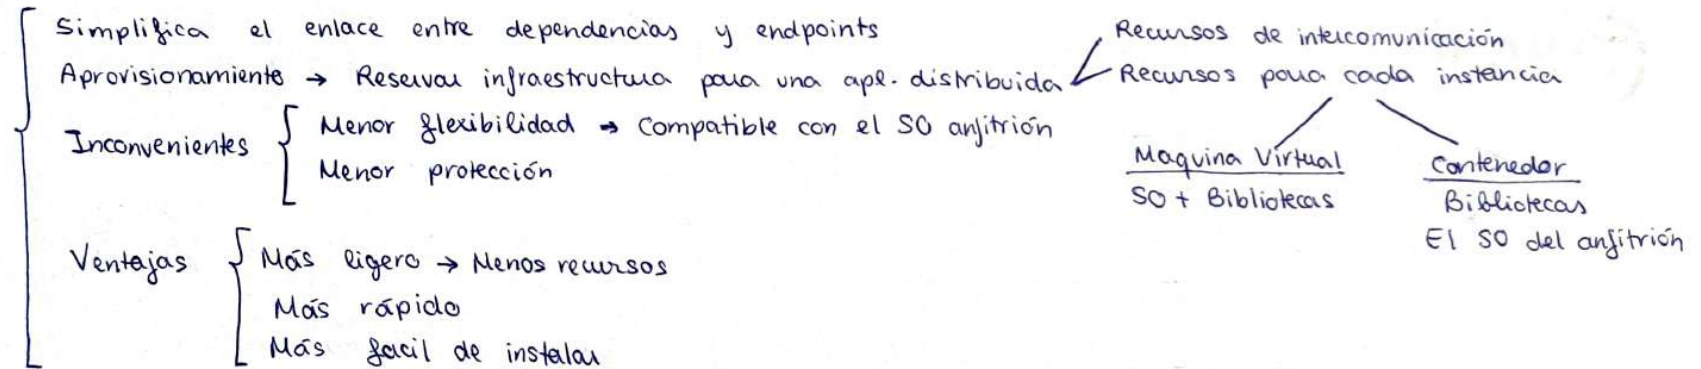 Simplifica el enlace entre dependencias y endpoints
Aprovisionamiento → Reservar infraestructura para una apl. distribuida
Recursos de intercomunicación
Recursos para cada instancia
Maquina Virtual
SO + Bibliotecas
Contenedor
Bibliotecas
El SO del anfitrión
Inconvenientes
Menor flexibilidad → Compatible con el SO anfitrión
Menor protección
Ventajas
Más ligero → Menos recursos
Más rápido
Más facil de instalar